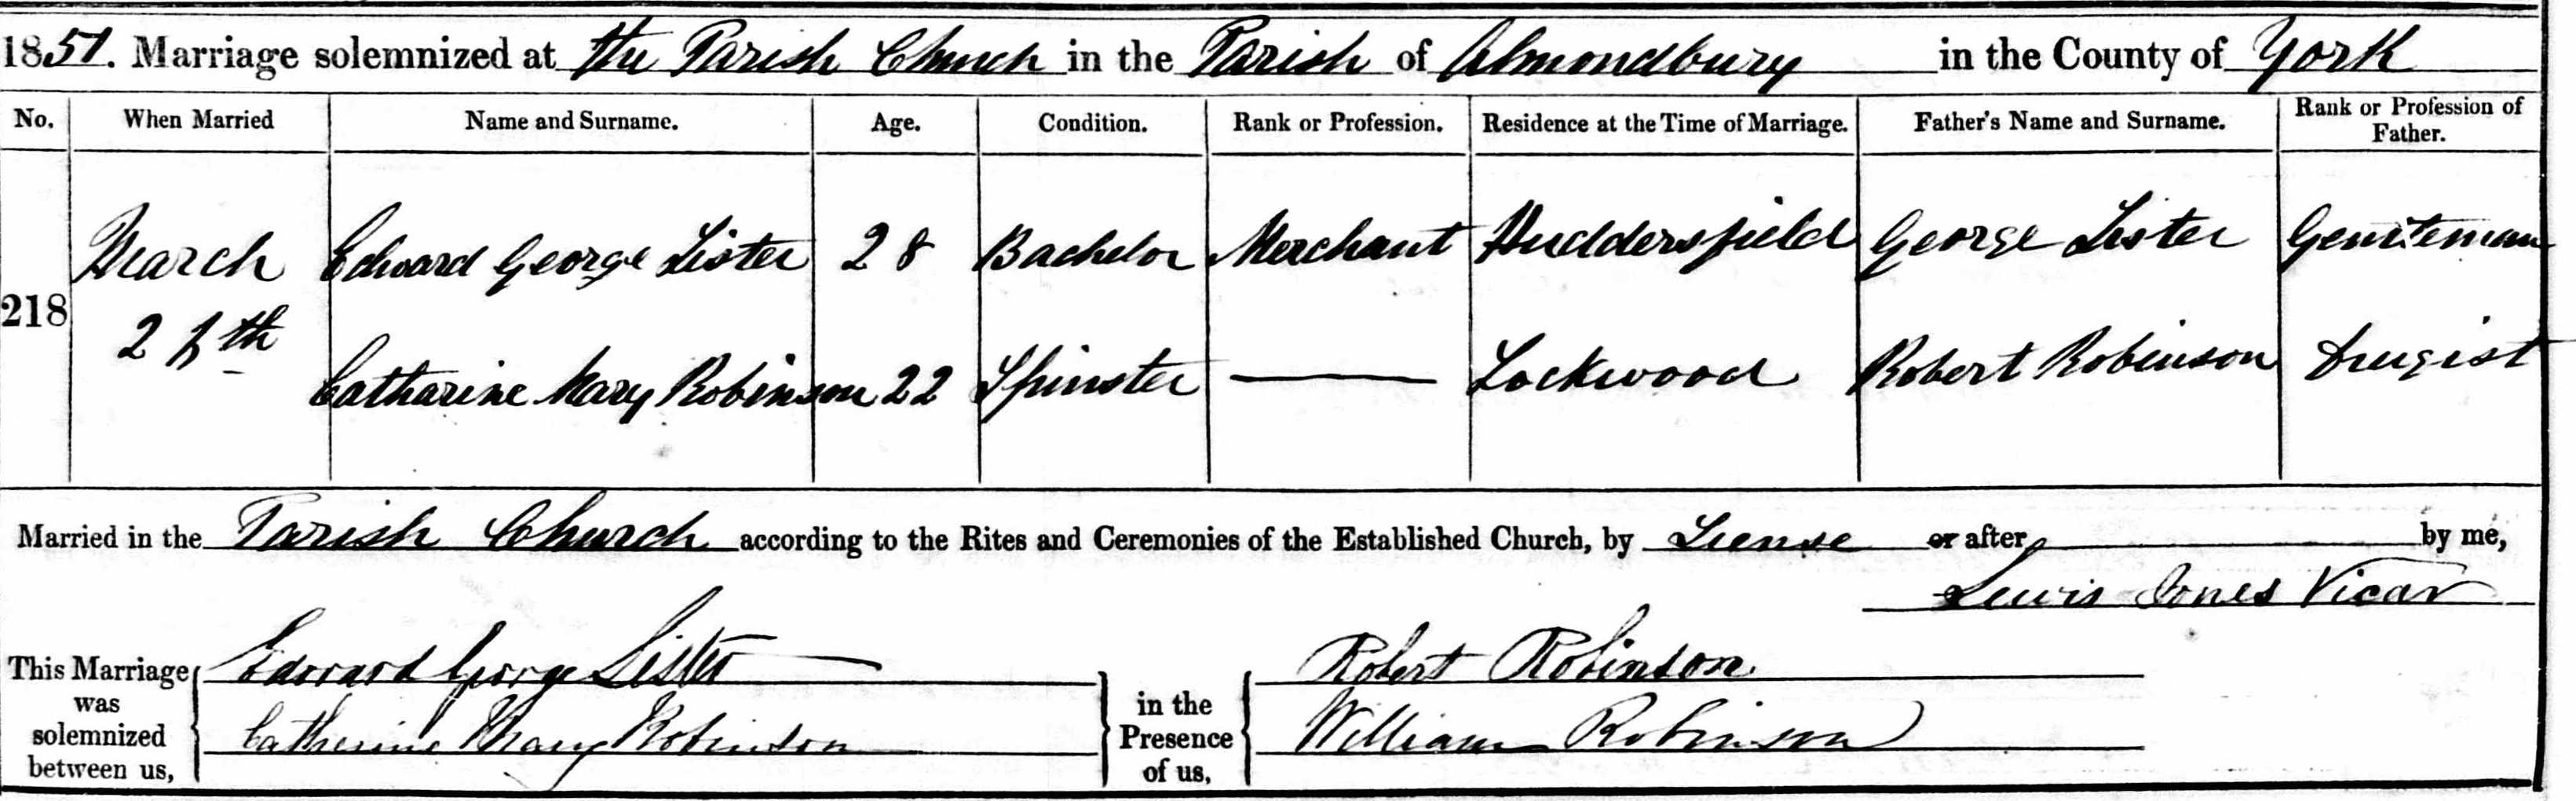 1851. Marriage solemnized at the Parish Church in the Parish of Almondbury in the County of York
No. When Married Name and Surname. Age. Condition. Rank or Profession. Residence at the Time of Marriage. Father's Name and Surname. Rank or Profession of Father.
218 March Edward George Lister 28 Bachelor Merchant Huddersfield George Lister Gentleman
Catharine Mary Robinson 22 Spinster — Lockwood Robert Robinson Drugist
Married in the Parish Church according to the Rites and Ceremonies of the Established Church, by License or after by me,
Lewis Jones Vicar
This Marriage was solemnized between us, Edward George Lister in the Presence of us, Robert Robinson
Catherine Mary Robinson William Robinson